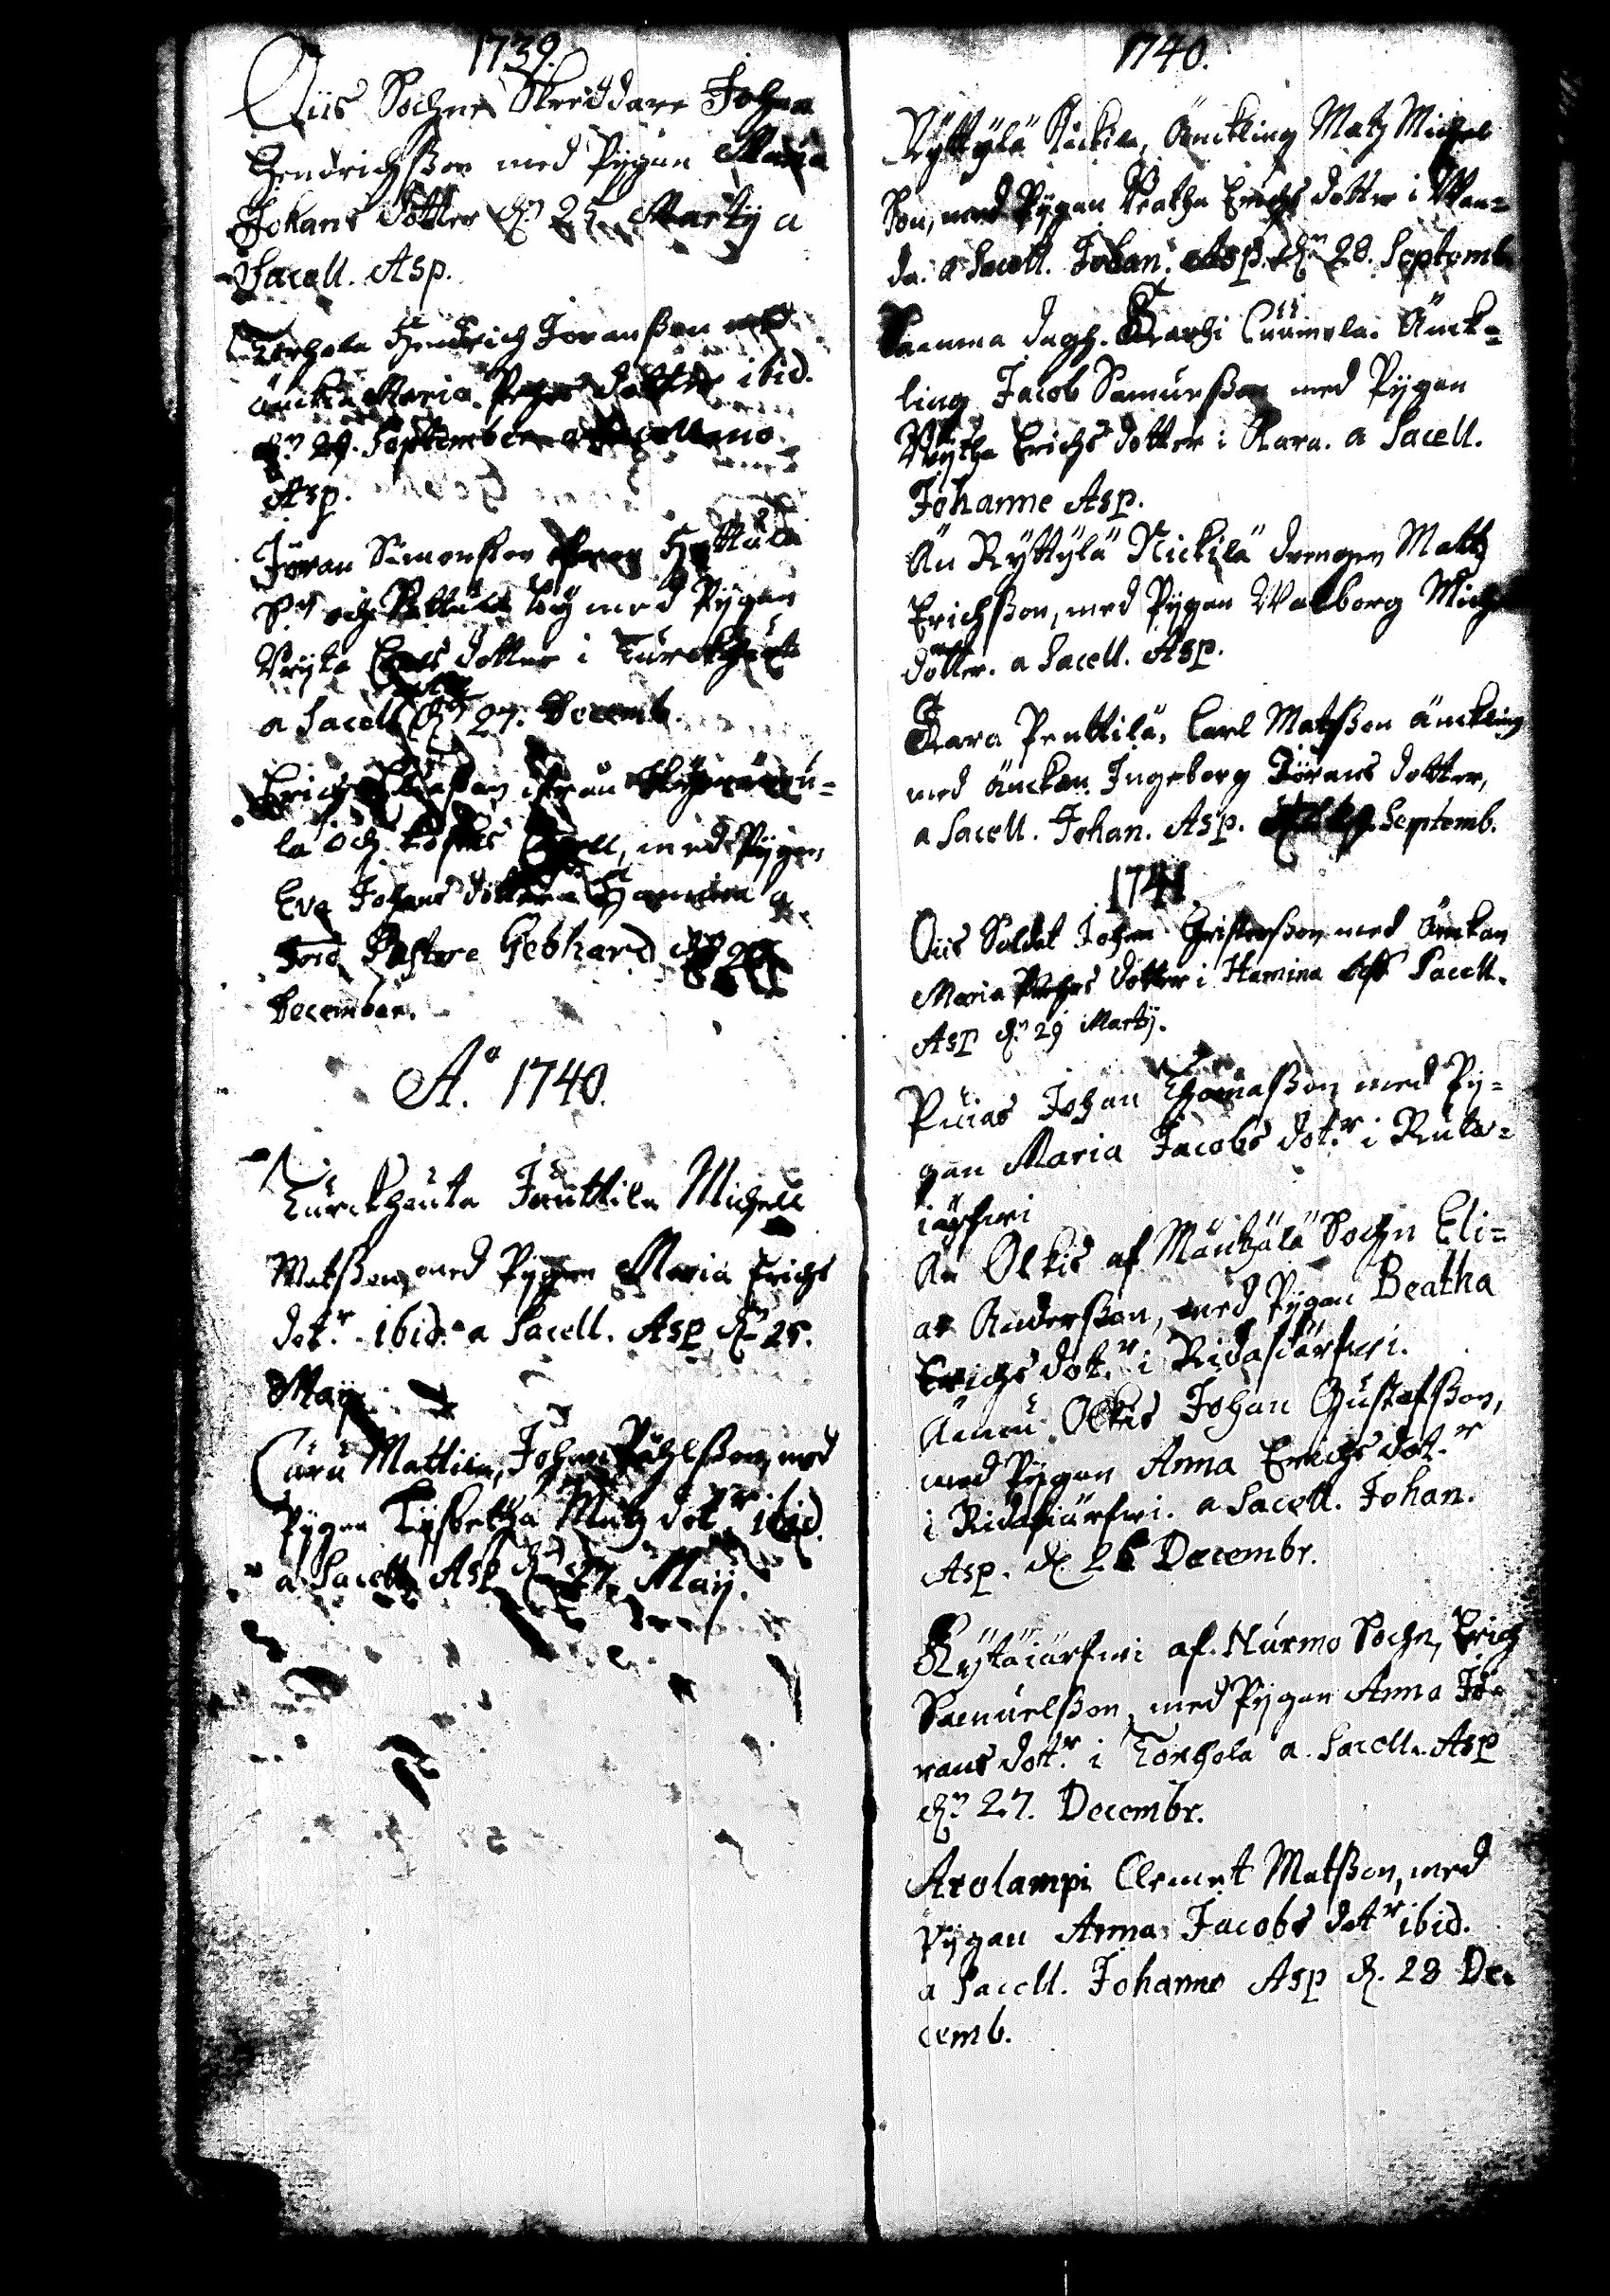 1739.
Oiis Sochne Skreddare Johan
Hendrichßon med Pygan Maria
Johans dotter dn 25 Martij a
Sacell. Asp.
Torhola Hendrich Joranßon med
änckia Maria Pehrs dotter ibid.
dn 29. September a Sacellano
Asp.
Jöran Simonßon Hattula
Sn och by med Pygan
Vryta dotter i Turckhauta
a Sacell dn 27. Decemb.
Erich
la och med Pygan
Eva Johans dotter i Hamina a
Pastore Gebhard dn
December.
Ao 1740.
Turckhauta Jouttila Michell
Matßon, med Pygan Maria Erichs
dotr. ibid. a Sacell. Asp dn 25.
Maij
Curu Mattila, Johan Påhlßon, med
Pygan Lysbetha Matz dotr ibid.
a Sacell. Asp dn 27. Maij.
1740.
Ryttylä Nickila, Änckling Matz Michel
Son, med Pygan Beatha Erichs dotter i Wan=
da. a Sacell. Johan. Asp. dn 28. Septemb.
Samma dagh. Karhi Cuumola. Änck=
ling Jacob Samuelßon med Pygan
Vryta Erichs dotter i Kara. a Sacell.
Johanne Asp.
Än Ryttylä Nickilä drengen Mattz
Erichßon, med Pygan Walborg Michels
dotter. a Sacell. Asp.
Kara Penttilä, Carl Matßon änckling
med änckan Ingeborg Jörans dotter,
a Sacell. Johan. Asp. Septemb.
1741.
Oiis Soldat Johan Christerßon med Änckan
Maria Pehrs dotter i Hamina Sacell.
Asp dn 29 Martij.
Puias Johan Thomaßon med Py=
gan Maria Jacobs dotr. i Ruta=
iärfwi
An Olkis af Mäntzälä Sochn Eli=
as Anderßon, med Pygan Beatha
Erichs dotr. i Ridasiärfwi.
Ännu Olkis Johan Gustafßon,
med Pygan Anna Erichs dotr.
i Ridasiärfwi. a Sacell. Johan.
Asp. d. 26 Decembr.
Kytäiärfwi af Nurmo Sochn, Erich
Samuelßon, med Pygan Anna Jö=
rans dottr. i Torhola a. Sacell. Asp
dn 27. Decembr.
Arolampi Clemet Matßon, med
Pygan Anna Jacobs dotr ibid.
a Sacell. Johanne Asp d. 28 De=
cemb.